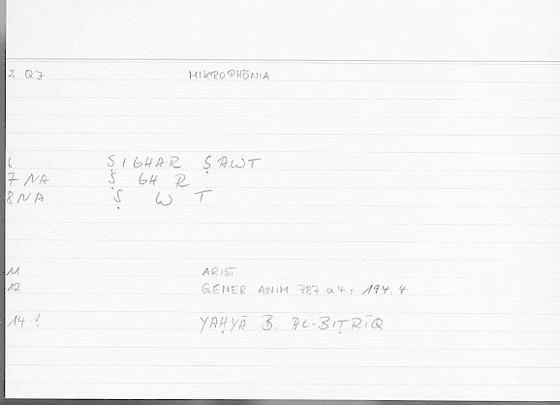 2 Q7 MIKROPHŌNIA
6 ṢIGHAR ṢAWT
7 NA Ṣ GH R
8 NA Ṣ W T
11 ARIST
12 GENER ANIM 787 a 4 : 194.4
14 ? YAḤYĀ B. AL-BIṬRĪQ